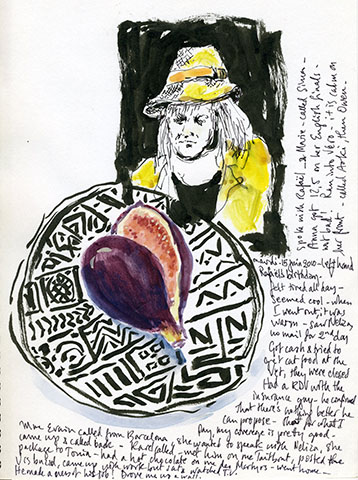 spoke with Rafaël & Marie - called Simon -
Anna got 12,5 on her English finals -
not bad! Ran into Vero - it is calm on
her front - called Aoshi, then Owen -
mardi - 15 juin 2010 - left hand
Rafaël's birthday -
felt tired all day -
seemed cool - when
I went out, it was
warm - saw
no mail for 2nd day
Got cash & tried to
get cat food at the
vet, they were closed
Had a RDV with the
insurance guy - he confirmed
that there's nothing better he
can propose - that for what I
pay, my coverage is pretty good -
Mme called from Barcelona, she wanted to speak with Melica, she
came up & called back - Karel called - met him on rue Taitbout, posted the
package to Tonia - had a hot chocolate on rue des Martyrs - went home -
V is bored, came up with work but sat & watched T.V.
He made a piss of his job! Drove me up a wall!